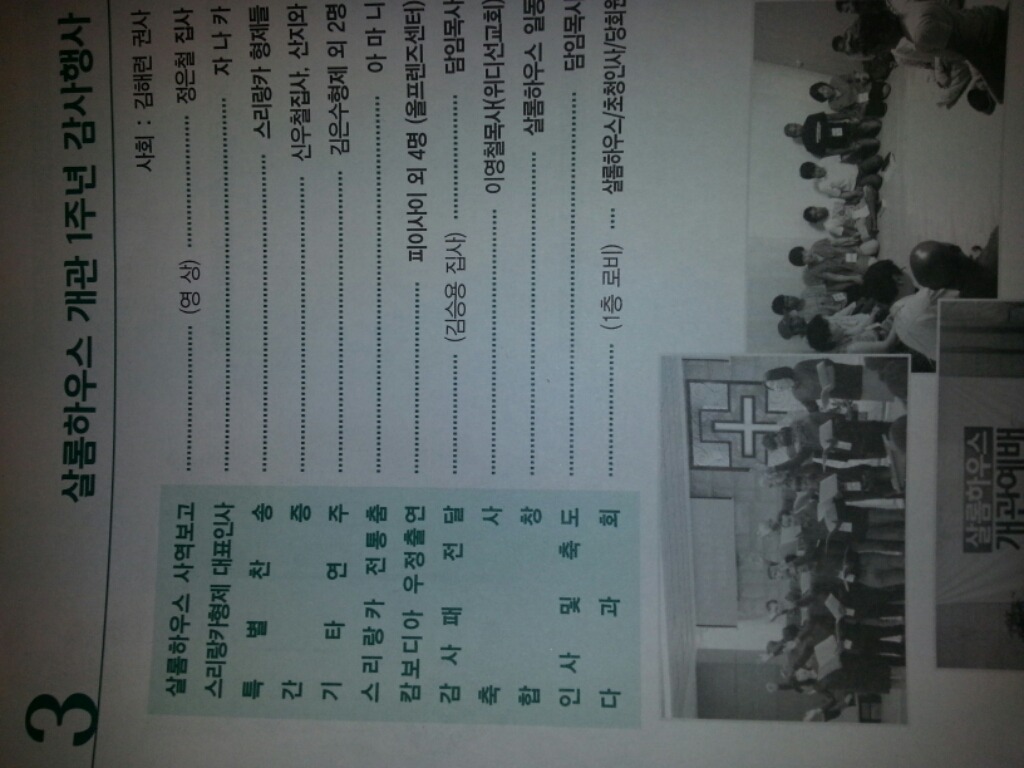 3 살롬하우스 개관 1주년 감사행사
사회 : 김해련 권사
살롬하우스 사역보고 (영 상) 정은철 집사
스리랑카형제 대표인사 자 나 카
특 별 찬 송 스리랑카 형제들
간 증 신우철집사, 산지와
기 타 연 주 김은수형제 외 2명
스리랑카 전통춤 아 마 니
캄보디아 우정출연 피이사이 외 4명 (올프렌즈센터)
감 사 패 전 달 (김승용 집사) 담임목사
축 사 이영철목사(위디선교회)
합 창 살롬하우스 일동
인 사 및 축 도 담임목사
다 과 회 (1층 로비) 살롬하우스/초청인사/당회원
살롬하우스
개관예배